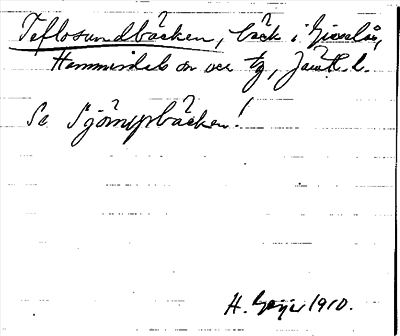 Teflosundbäcken, bäck i Gisselås,
Hammerdals sn och tg, Jämtl. l.
Se Sjömyrbäcken!
H. Geijer 1910.